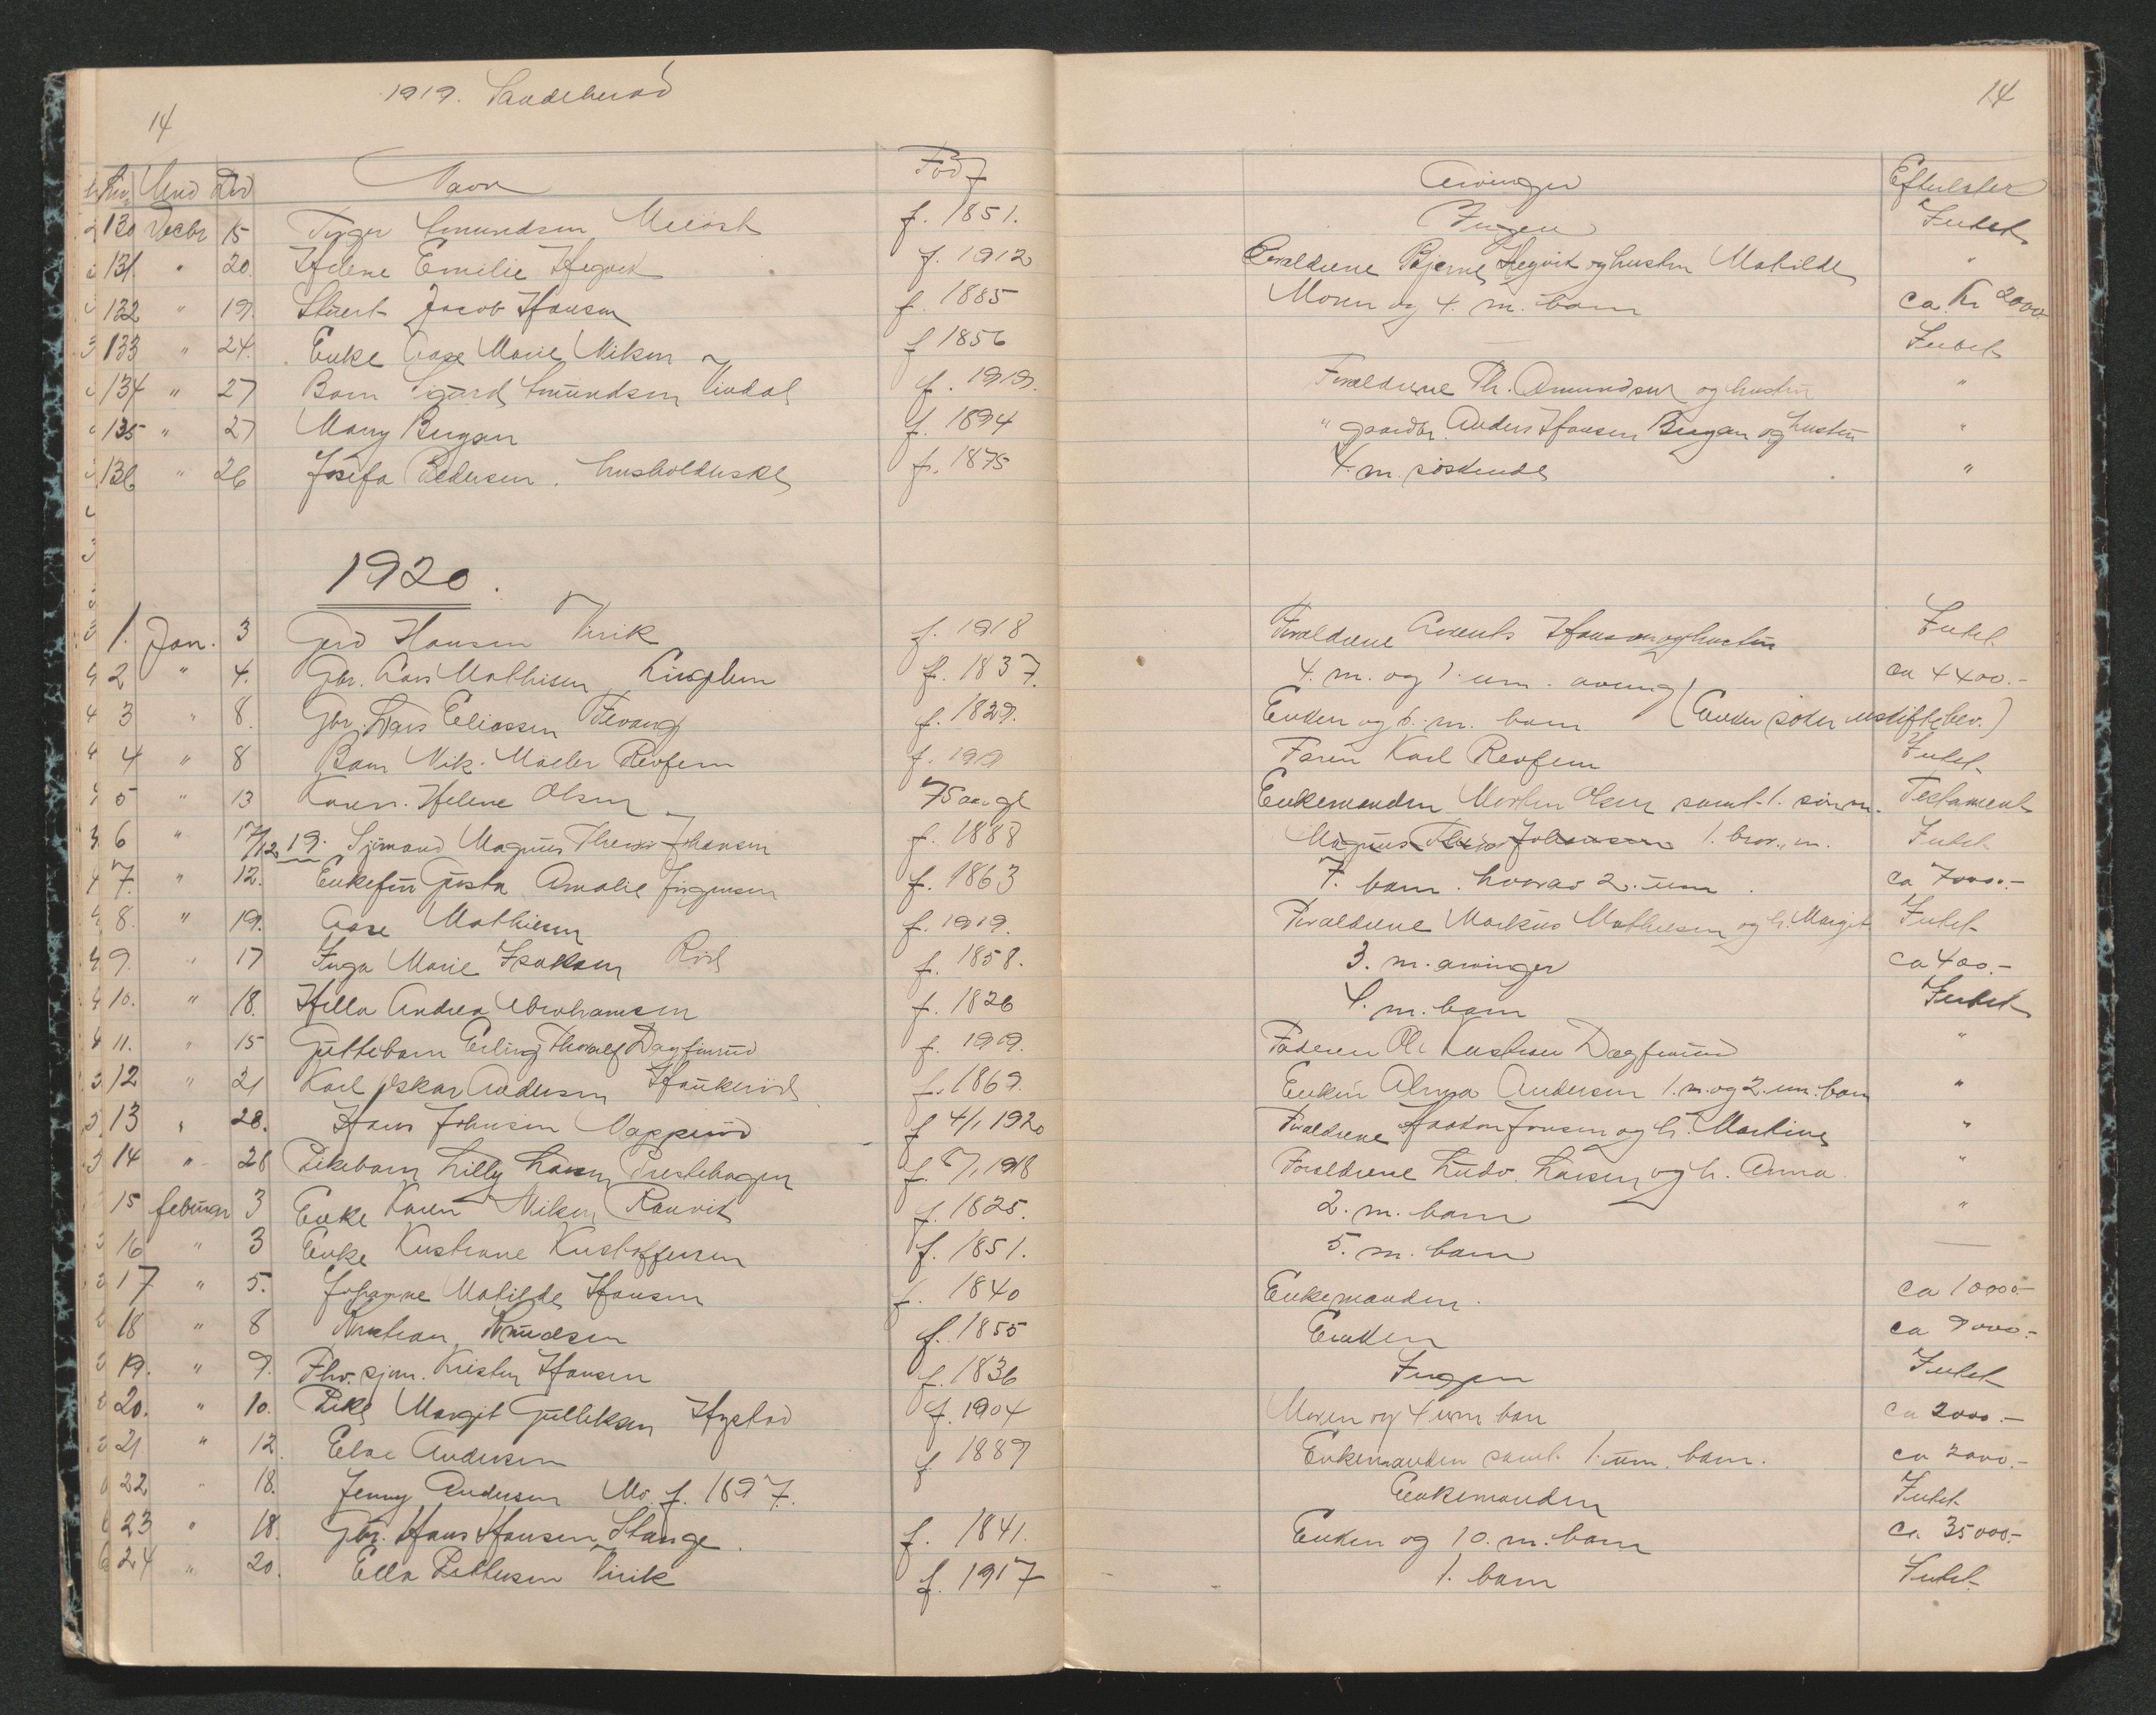 1919. Sandeherad
14
14
Nr. Mnd Dad Navn Född Arvinger Efterlater
130 Decbr 15 Amundsen f. 1851. Ingen Intet
131 " 20. Helene Emilie Hegvik f. 1912 Forældrene Bjerne Hegvik og hustru Matilde "
132 " 19. Stuert Jacob Hansen f. 1885 Moren og 4. m. barn ca. Kr 2000
133 " 24. Enke Aase Marie Nilsen f 1856 Intet
134 " 27 Barn Sigurd Amundsen Vindal f. 1919. Forældrene Th. Amundsen og hustru "
135 " 27 Mary Bergan f. 1894 " gaardbr. Anders Hansen Bergan og hustru "
136 " 26 Josefa Pedersen. husholderske f. 1875 4. m. söskende "
1920.
1. Jan. 3 Gerd Hansen Virik f. 1918 Forældrene Hansen og hustru Intet
2 " 4. Gbr. Lars Mathisen f. 1837. 4. m. og 1. um. arving ca 4400.-
3 " 8. Gbr. Lars Eliassen Fevang f. 1829. Enken og 6. m. barn (Enken söker uskiftebev.)
4 " 8 Barn Nik. Møeler f. 1919 Faren Karl Intet
5 " 13 Karen Helene Olsen 75 aar gl Enkemanden Morten Olsen samt 1. sön m. Testament
6 " 17/12 19. Sjömand Magnus Johansen f. 1888 Magnus Johansen 1. bror m. Intet
7. " 12. Enkefru Gusta Amalie Jörgensen f. 1863 7. barn. hvorav 2. um. ca 7000.-
8. " 19. Aase Mathisen f. 1919. Forældrene Markus Mathisen og h. Margit Intet
9. " 17 Inga Marie Isaksen Röd f. 1858. 3. m. arvinger ca 400.-
10. " 18. Hella Andrea Abrahamsen f. 1826 4. m. barn Intet
11. " 15 Guttebarn Erling Thoralf Dagfinrud f. 1919. Faderen Ole Kristian Dagfinrud "
12 " 21 Karl Oskar Andersen Haukeröd f. 1869. Enken Alma Andersen 1. m. og 2. um. barn "
13 " 28. Hans Johnsen f 4/1 1920 Forældrene Haakon Jonsen og h. Martine "
14 " 28 Pikebarn Lilly Larsen Prestehagen f. 5/1 1918 Forældrene Ludv. Larsen og h. Anna. "
15 februar 3 Enke Karen Nilsen Ranvik f. 1825. 2. m. barn "
16 " 3 Enke Kristiane Kristoffersen f. 1851. 5. m. barn —
17 " 5. Johanne Matilde Hansen f. 1840 Enkemanden. ca 10000.-
18 " 8 Kristian Knudsen f. 1855 Enken ca 9000.-
19. " 9. Fhv. sjöm. Kristen Hansen f. 1836 Ingen Intet
20. " 10. Pike Margit Gulliksen Hystad f. 1904 Moren og 4 um barn ca 2000.-
21 " 12. Else Andersen f. 1889 Enkemanden samt 1. um. barn. ca 2000.-
22 " 18. Jenny Andersen Mo. f. 1897. Enkemanden Intet
23 " 18. Gbr. Hans Hansen Stange. f. 1841. Enken og 10. m. barn ca 35000.-
24 " 20. Ella Pettersen Virik f. 1917 1. barn Intet